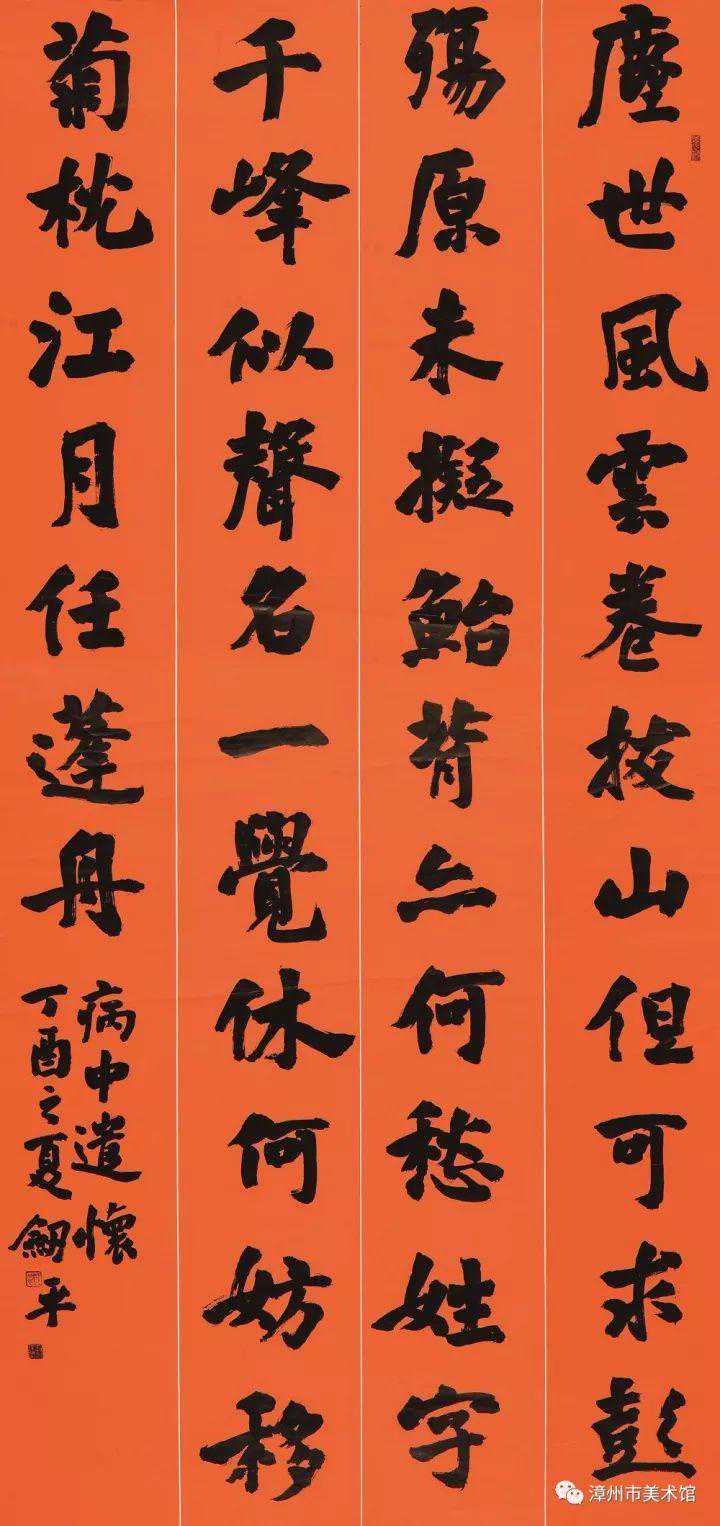 塵世風雲卷拔山但可求彭
殤原未擬鮐背亦何愁姓字
千峰似聲名一覺休何妨移
菊枕江月任蓬舟
病中遣懷
丁酉之夏劒平
漳州市美术馆